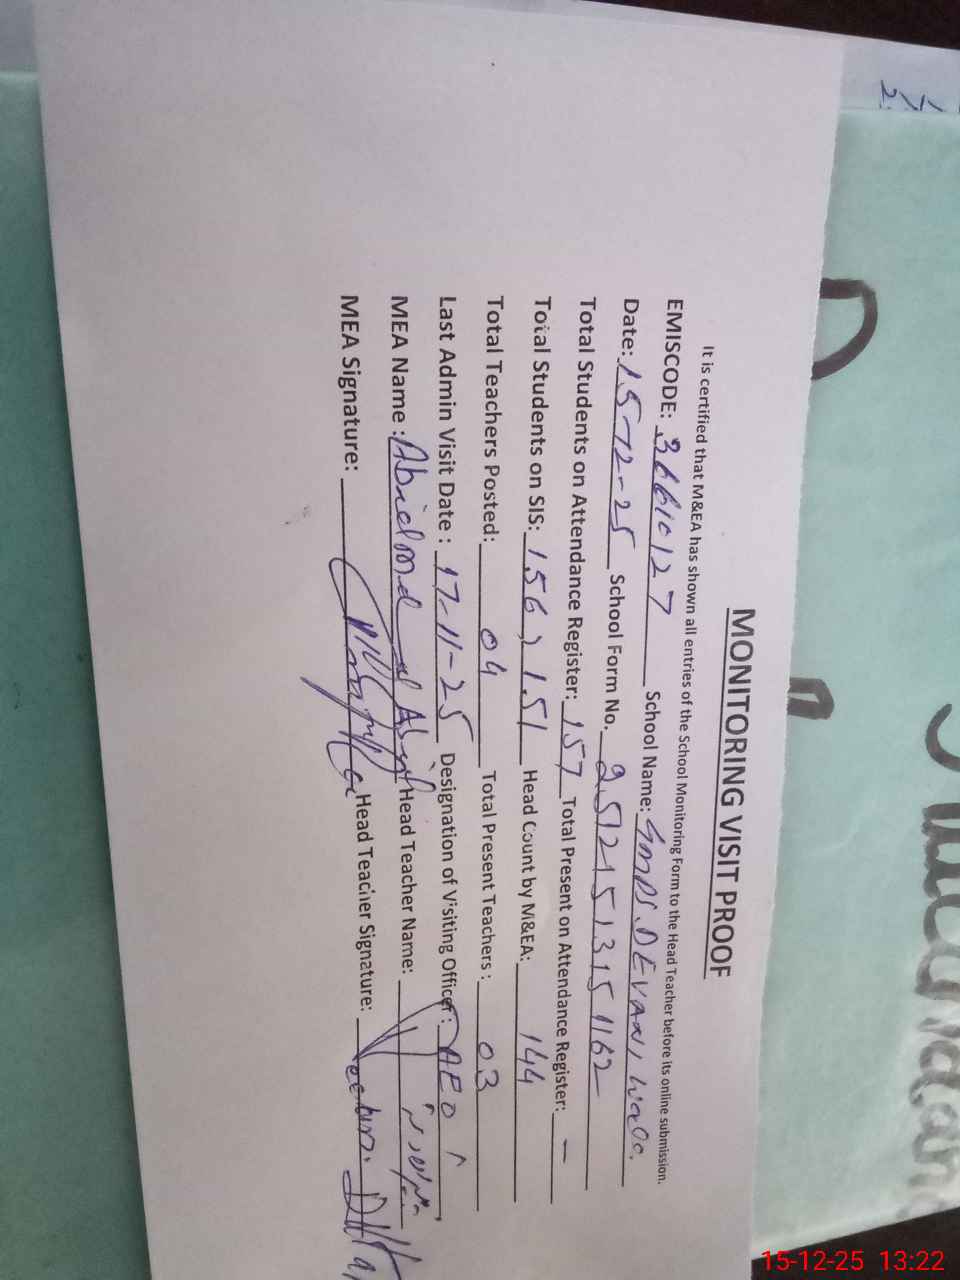 MONITORING VISIT PROOF
It is certified that M&EA has shown all entries of the School Monitoring Form to the Head Teacher before its online submission.
EMISCODE: 36610127 School Name: GMPS. DEVAN, Wala.
Date: 15-12-25 School Form No. 25121513151162
Total Students on Attendance Register: 157 Total Present on Attendance Register: —
Total Students on SIS: 156, 151 Head Count by M&EA: 144
Total Teachers Posted: 04 Total Present Teachers: 03
Last Admin Visit Date: 17-11-25 Designation of Visiting Officer: AEO
MEA Name: Head Teacher Name:
MEA Signature: Head Teacher Signature:
15-12-25 13:22